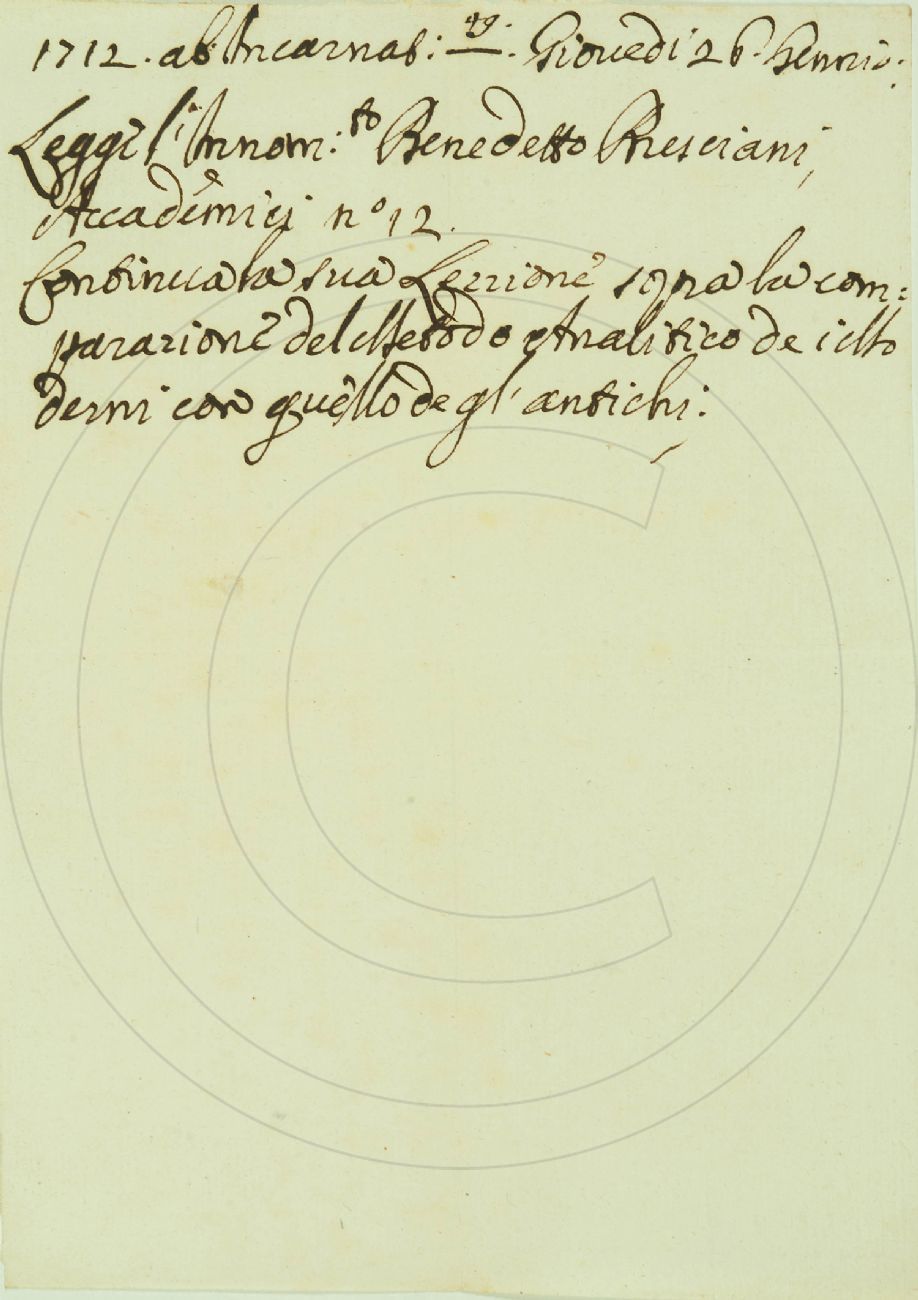 1712. ab Incarnat: ne. Giovedi 26. Genn:o:
Legge l'Innom:to Benedetto Bresciani,
Accademici n.o 12.
Continua la sua Lezzione sopra la com=
parazione del Metodo Analitico de i Mo
derni con quello degl' antichi.